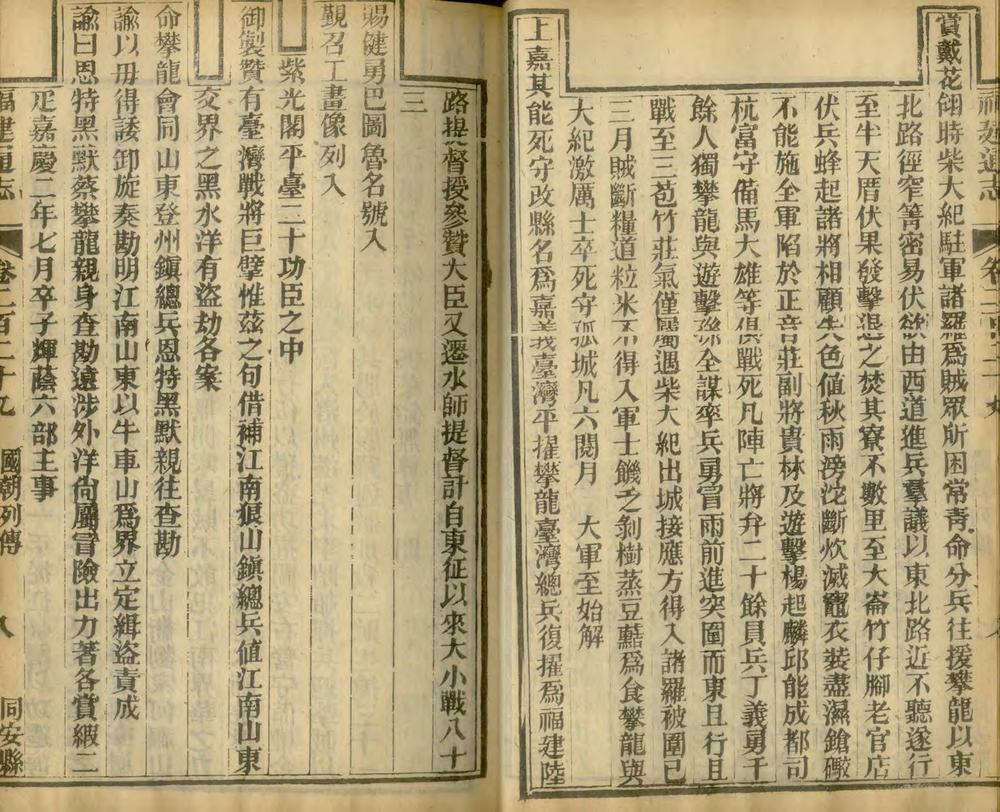 賞戴花翎時柴大紀駐軍諸羅爲賊眾所困常青命分兵往援攀龍以東
北路徑窄箐密易伏欲由西道進兵羣議以東北路近不聽遂行
至牛天厝伏果發擊退之焚其寮不數里至大崙竹仔腳老官店
伏兵蜂起諸將相顧失色值秋雨滂沱斷炊滅竈衣裝盡濕鎗礮
不能施全軍陷於正音莊副將貴林及遊擊楊起麟邱能成都司
杭富守備馬大雄等俱戰死凡陣亡將弁二十餘員兵丁義勇千
餘人獨攀龍與遊擊孫全謀率兵勇冒雨前進突圍而東且行且
戰至三苞竹莊氣僅屬遇柴大紀出城接應方得入諸羅被圍已
三月賊斷糧道粒米不得入軍士饑乏剝樹蒸豆䴷爲食攀龍與
大紀激厲士卒死守孤城凡六閱月 大軍至始解
上嘉其能死守改縣名爲嘉義臺灣平擢攀龍臺灣總兵復擢爲福建陸
路提督授參贊大臣又遷水師提督計自東征以來大小戰八十
三
賜健勇巴圖魯名號入
覲召工畫像列入
紫光閣平臺二十功臣之中
御製贊有臺灣戰將巨擘惟茲之句借補江南狼山鎮總兵值江南山東
交界之黑水洋有盜劫各案
命攀龍會同山東登州鎮總兵恩特黑默親往查勘
諭以毋得諉卸旋奏勘明江南山東以牛車山爲界立定緝盜責成
諭曰恩特黑默蔡攀龍親身查勘遠涉外洋尙屬冒險出力著各賞緞二
疋嘉慶二年七月卒子輝蔭六部主事
福建通志 卷二百二十九 國朝列傳 八 同安縣